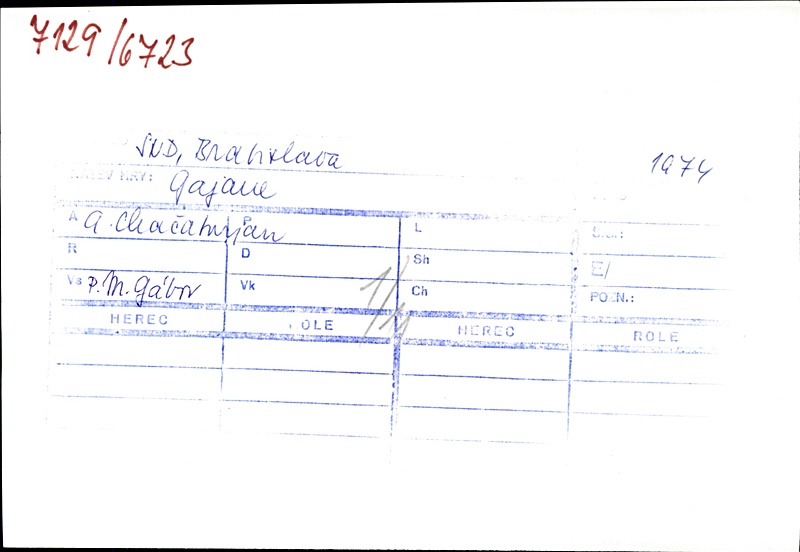 7129/6723
SND, Bratislava 1974
NÁZEV HRY: Gajane
A A. Chačaturjan P L
R D Sh E/
Vs P. M. Gábor Vk Ch POZN.:
1/11
HEREC ROLE HEREC ROLE